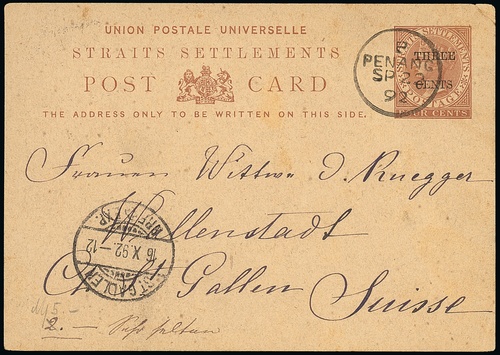 UNION POSTALE UNIVERSELLE
STRAITS SETTLEMENTS
POST CARD
THE ADDRESS ONLY TO BE WRITTEN ON THIS SIDE.
STRAITS SETTLEMENTS
THREE
CENTS
POSTAGE
FOUR CENTS
PENANG
SP 23
92
Frauen Wittwe J. Ruegger
Wallenstadt
Ct. St. Gallen Suisse
ST. GALLEN
16 X.92 - 12
BRF. EXP.
2. — Sehr selten